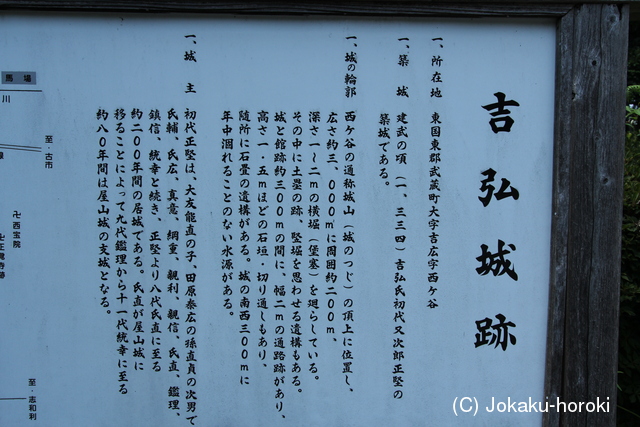 吉弘城跡
一、所在地　東国東郡武蔵町大字吉広字西ヶ谷
一、築　城　建武の頃（一、三三四）吉弘氏初代又次郎正堅の
築城である。
一、城の輪郭　西ヶ谷の通称城山（城のつじ）の頂上に位置し、
広さ約三、〇〇〇㎡に周囲約二〇〇m、
深さ一〜二mの横堀（堡塞）を廻らしている。
その中に土塁の跡、堅堀を思わせる遺構もある。
城と館跡約三〇〇mの間に、幅二mの通路跡があり、
高さ一・五mほどの石垣・切り通しもあり、
随所に石畳の遺構がある。城の南西三〇〇mに
年中涸れることのない水源がある。
一、城　主　初代正堅は、大友能直の子、田原泰広の孫直貞の次男で
氏輔、氏広、真意、綱重、親利、親信、氏直、鑑理、
鎮信、統幸と続き、正堅より八代氏直に至る
約二〇〇年間の居城である。氏直が屋山城に
移ることによって九代鑑理から十一代統幸に至る
約八〇年間は屋山城の支城となる。
馬場
川
至・古市
卍西宝院
至・志和利
(C) Jokaku-horoki